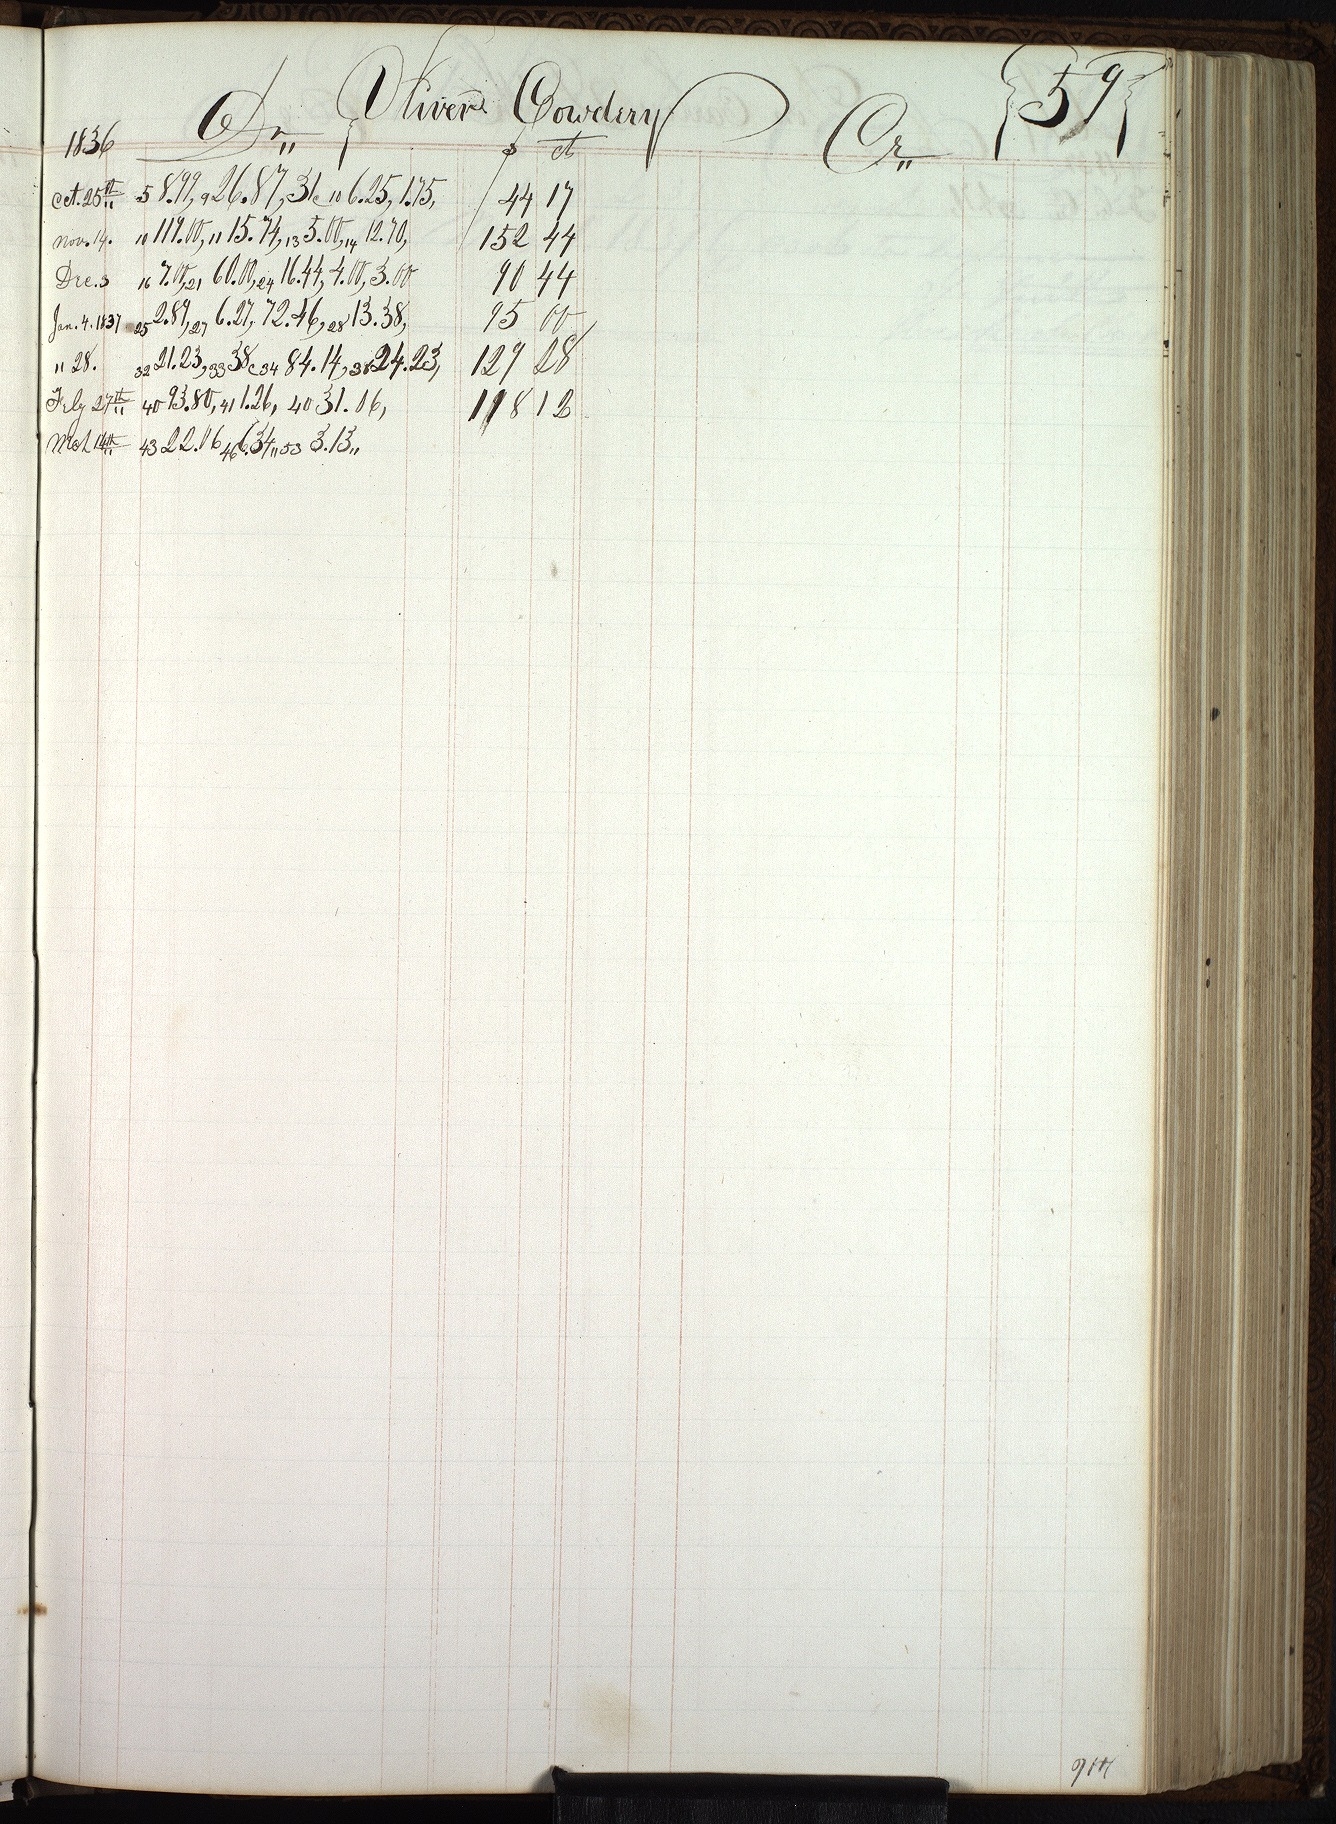 {59}
Dr,, {Oliver Cowdery Cr,,
1836 $ ct
Oct. 25th,, 5 8.99, 9 26.87, 31c 10 6.25, 1.75, 44 17
Nov. 14. 10 119.00, 11 15.74, 13 5.00, 14 12.70, 152 44
Dec. 3 16 7.00, 21 60.00, 24 16.44, 4.00, 3.00 90 44
Jan. 4. 1837 25 2.89, 27 6.27, 72.46, 28 13.38, 95 00
" 28. 32 21.23, 33 38c 34 84.14, 38 24.23, 129 28
Feby 27th,, 40 93.80, 41 1.26, 40 31.06, 118 12
Mch 14th,, 43 22.06 46 6.34,, 53 3.13,,